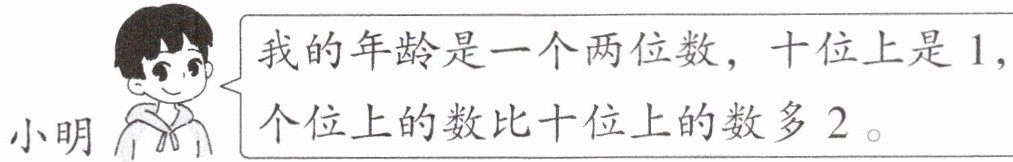 我的年龄是一个两位数，十位上是1，
个位上的数比十位上的数多2。
小明